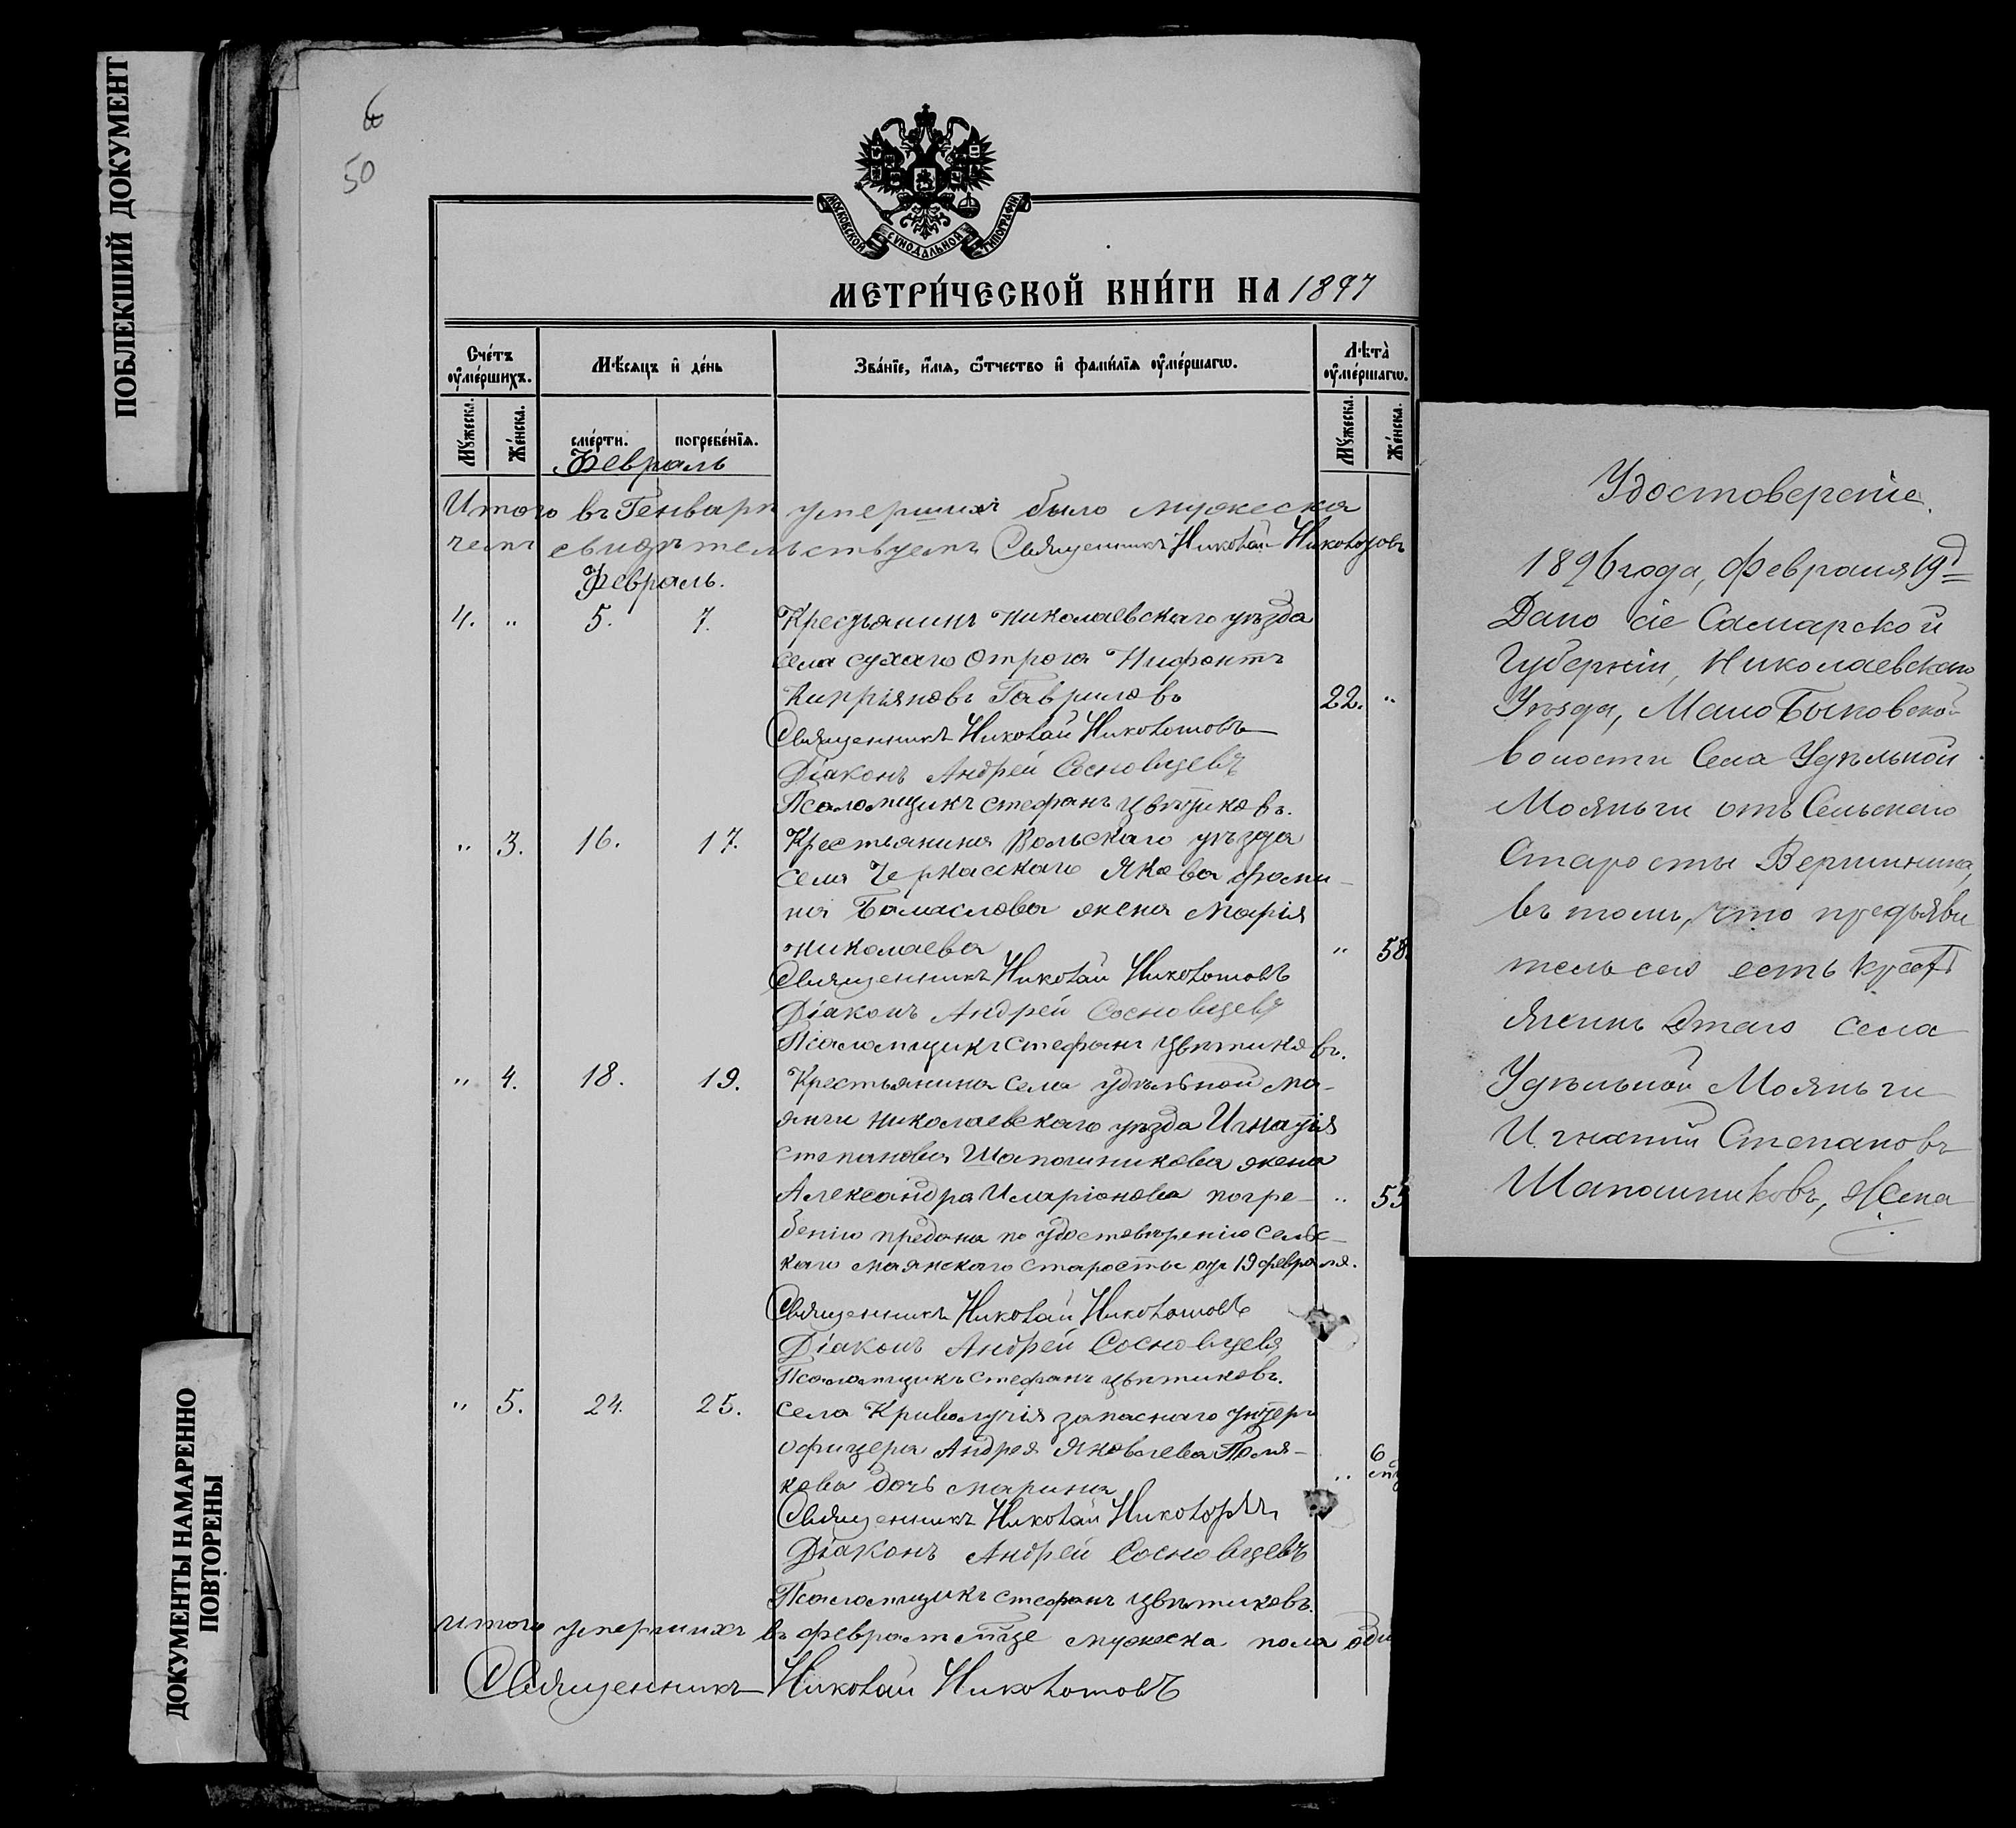 ПОБЛЕКШИЙ ДОКУМЕНТ
ДОКУМЕНТЫ НАМАРЕННО
ПОВТОРЕНЫ
6
50
МОСКОВСКОЙ СѴНОДАЛЬНОЙ ТИПОГРАФІИ
МЕТРИ́ЧЕСКОЙ КНИ́ГИ НА 1897
Сче́тъ ᲂу҆ме́ршихъ.
Мѣ́сяцъ и҆ де́нь
Зва́нїе, и҆́мѧ, ѻ҆́тчество и҆ фами́лїѧ ᲂу҆ме́ршагѡ.
Лѣта̀ ᲂу҆ме́ршагѡ.
Мꙋ́жеска.
Же́нска.
сме́рти.
погребе́нїѧ.
Мꙋ́жеска.
Же́нска.
Февраль
Итого въ Генварѣ умершихъ было мужеска
чемъ свидѣтельствуемъ Священникъ Николай
Февраль.
4. " 5. 7. Крестьянинъ Николаевскаго уѣзда
села сухаго Отрога Нифонтъ
Кипріяновъ Гавриловъ 22. "
Священникъ Николай
Діаконъ Андрей Сосновцевъ
Псаломщикъ Стефанъ Цвѣтиковъ.
" 3. 16. 17. Крестьянина Вольскаго уѣзда
села Черкасскаго Якова Фоми-
на жена Марія
Николаева " 58.
Священникъ Николай
Діаконъ Андрей Сосновцевъ
Псаломщикъ Стефанъ Цвѣтиковъ.
" 4. 18. 19. Крестьянина села Удѣльной Ма-
янги Николаевскаго уѣзда Игнатія
Степанова Шапошникова жена
Александра Иларіонова погре- " 55
бенію предана по удостовѣренію Сельс-
каго маянскаго старосты отъ 19 февраля.
Священникъ Николай
Діаконъ Андрей Сосновцевъ
Псаломщикъ Стефанъ Цвѣтиковъ.
" 5. 24. 25. Села Криволучія запаснаго унтеръ
офицера Андрея Яковлева Поля- 6
кова дочь Марина "
Священникъ Николай
Діаконъ Андрей Сосновцевъ
Псаломщикъ Стефанъ Цвѣтиковъ.
итого умершихъ въ феврал мужеска пола
Священникъ Николай
Удостоверение.
1896 года, Февраля 19д
Дано сіе Самарской
Губерніи, Николаевскаго
Уѣзда, МалоБыковской
волости Села Удѣльной
Мояньги отъ Сельскаго
Старосты Вершинина,
въ томъ, что предъяви
тель сего есть Крест
янинъ этаго села
Удѣльной Мояньги
Игнатій Степановъ
Шапошниковъ, Жена